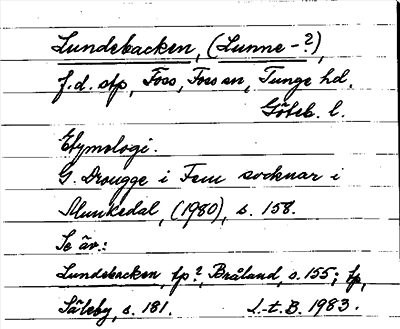 Lundebacken, (Lunne-?),
f.d. stp, Foss, Foss sn, Tunge hd,
Göteb. l.
Etymologi.
G. Drougge i Fem socknar i
Munkedal, (1980), s. 158.
Se äv:
Lundebacken, lp?, Bråland, s. 155; lp,
Säleby, s. 181. L-t. B. 1983.